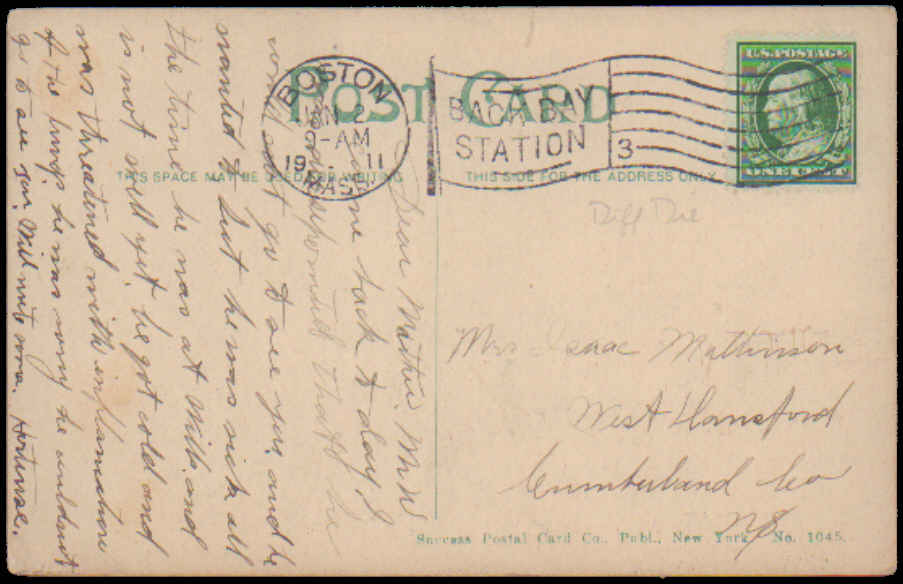 POST CARD
BOSTON
JAN 2
-AM
19 11
MASS.
BACK BAY
STATION
3
U.S. POSTAGE
ONE CENT
THIS SPACE MAY BE USED FOR WRITING
THIS SIDE FOR THE ADDRESS ONLY
Diff Die
Mrs Isaac Mattinson
West Hansford
Cumberland Co
NS
Success Postal Card Co., Publ., New York, No. 1045.
Dear Mattie. Mr W
came back to day &
disappointed that he
could not go to see you and he
wanted to but he was sick all
the time he was at Wills and
is not well yet. he got cold and
was threatened with inflamation
of the lungs he was sorry he couldnt
go to see you. Will write soon.